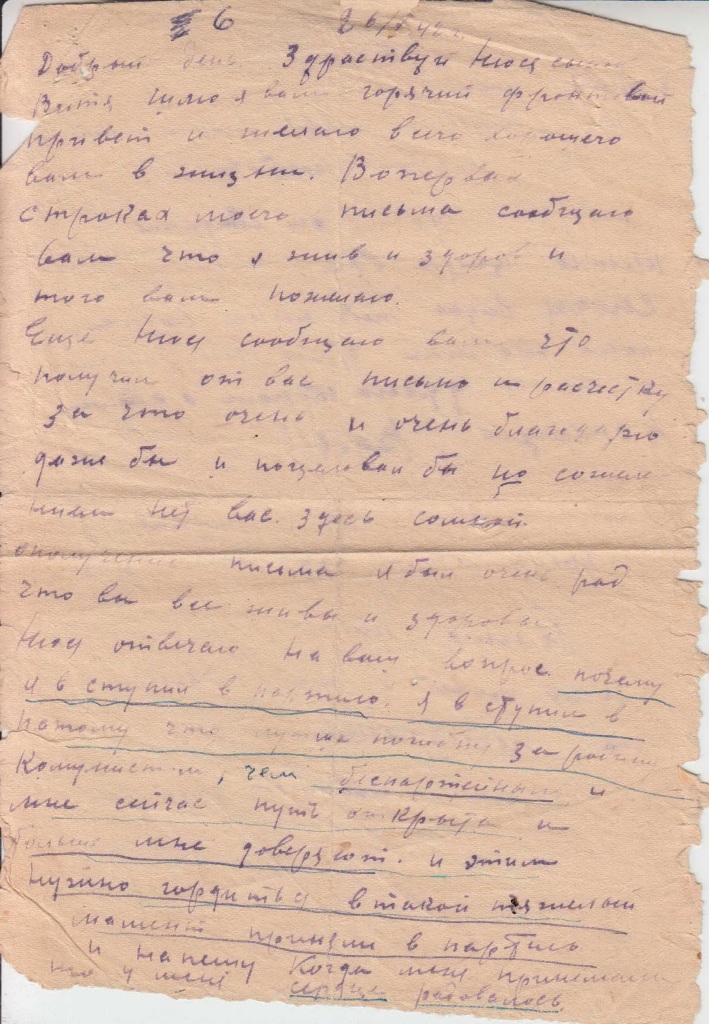 6 26/V 42 г.
Добрый день. Здраствуй Нюся сынок
Витя шлю я вам горячий фронтовой
привет и желаю всего хорошего
вам в жизни. Вопервых
строках моего письма сообщаю
вам что я жив и здоров и
того вам пожелаю.
Еще Нюся сообщаю вам что
получил от вас письмо и расчестку
за что очень и очень благодарю
даже бы и поцеловал бы но сожале
нием нет вас здесь сомной.
ополучение письма я был очень рад
что вы все живы и здоровы.
Нюся отвечаю на ваш вопрос почему
я вступил в партию. Я вступил в
потому что лучше погибну за родину
Комунистом, чем беспартейным и
мне сейчас путь открыта и
больше мне доверяют. и этим
нужно гордиться в такой тяжелый
мамент приняли в партию
и напишу Когда меня принемали
то у меня сердце радовалось.